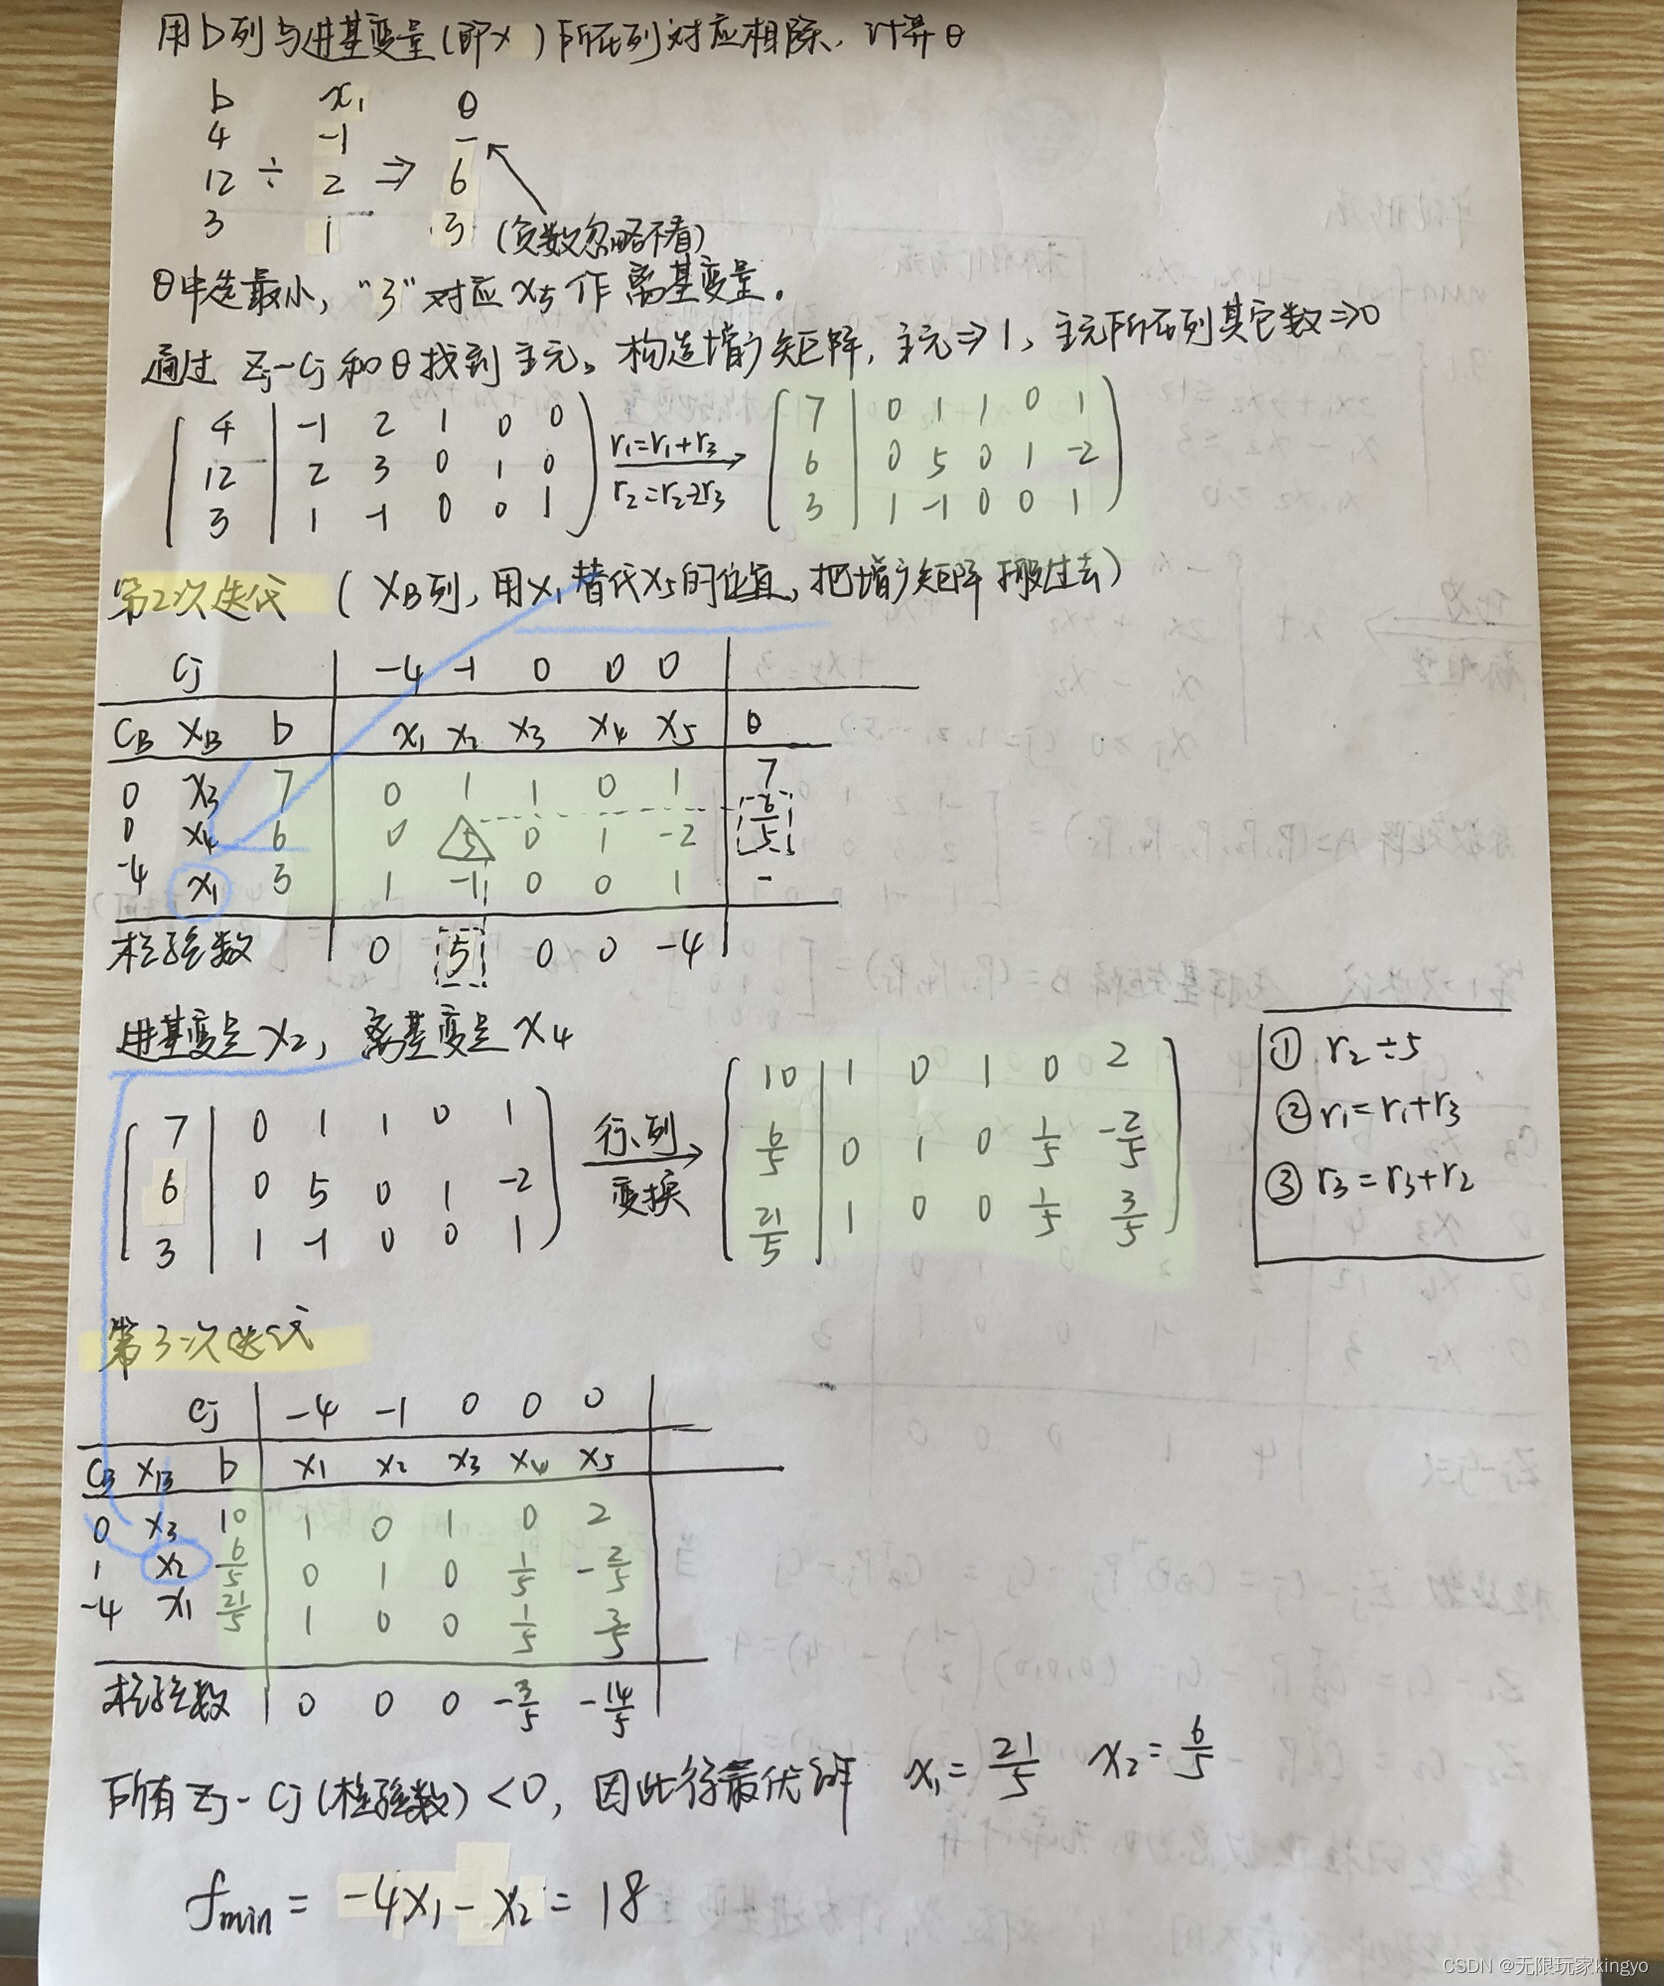 用b列与进基变量(即x )所在列对应相除,计算θ
b x₁ θ
4 -1 -
12 ÷ 2 ⇒ 6
3 1 3 (负数忽略不看)
θ中选最小, "3"对应x5作离基变量。
通过 Zj-Cj和θ找到主元。构造增广矩阵,主元⇒1,主元所在列其它数⇒0
4 | -1 2 1 0 0 r₁=r₁+r₃ 7 | 0 1 1 0 1
12 | 2 3 0 1 0 r₂=r₂-2r₃ 6 | 0 5 0 1 -2
3 | 1 -1 0 0 1 3 | 1 -1 0 0 1
第2次迭代 (XB列,用x₁替代x5的位置,把增广矩阵搬过去)
Cj -4 -1 0 0 0
CB XB b x₁ x₂ x₃ x₄ x₅ θ
0 x₃ 7 0 1 1 0 1 7
0 x₄ 6 0 5 0 1 -2 6/5
-4 x₁ 3 1 -1 0 0 1 -
检验数 0 5 0 0 -4
进基变是x₂, 离基变是x₄
7 | 0 1 1 0 1 行、列 10 | 1 0 1 0 2 ① r₂÷5
6 | 0 5 0 1 -2 变换 6/5 | 0 1 0 1/5 -2/5 ② r₁=r₁+r₃
3 | 1 -1 0 0 1 21/5 | 1 0 0 1/5 3/5 ③ r₃=r₃+r₂
第3次迭代
Cj -4 -1 0 0 0
CB XB b x₁ x₂ x₃ x₄ x₅
0 x₃ 10 1 0 1 0 2
1 x₂ 6/5 0 1 0 1/5 -2/5
-4 x₁ 21/5 1 0 0 1/5 3/5
检验数 0 0 0 -3/5 -14/5
所有Zj-Cj(检验数)<0, 因此得最优解 x₁=21/5 x₂=6/5
fmin = -4x₁-x₂ = 18
CSDN @无限玩家kingyo